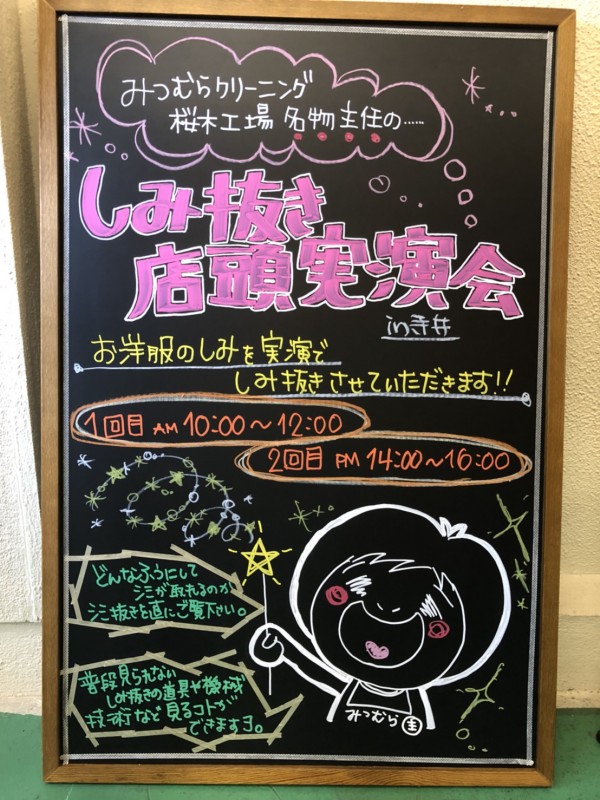 みつむらクリーニング
桜木工場 名物主任の……
しみ抜き
店頭実演会
in寺井
お洋服のしみを実演で
しみ抜きさせていただきます!!
1回目 AM 10:00～12:00
2回目 PM 14:00～16:00
どんなふうにして
シミが取れるのか
シミ抜きを直にご覧下さい。
普段見られない
しみ抜きの道具や機械
技術など見るコトが
できますヨ。
みつむら 主